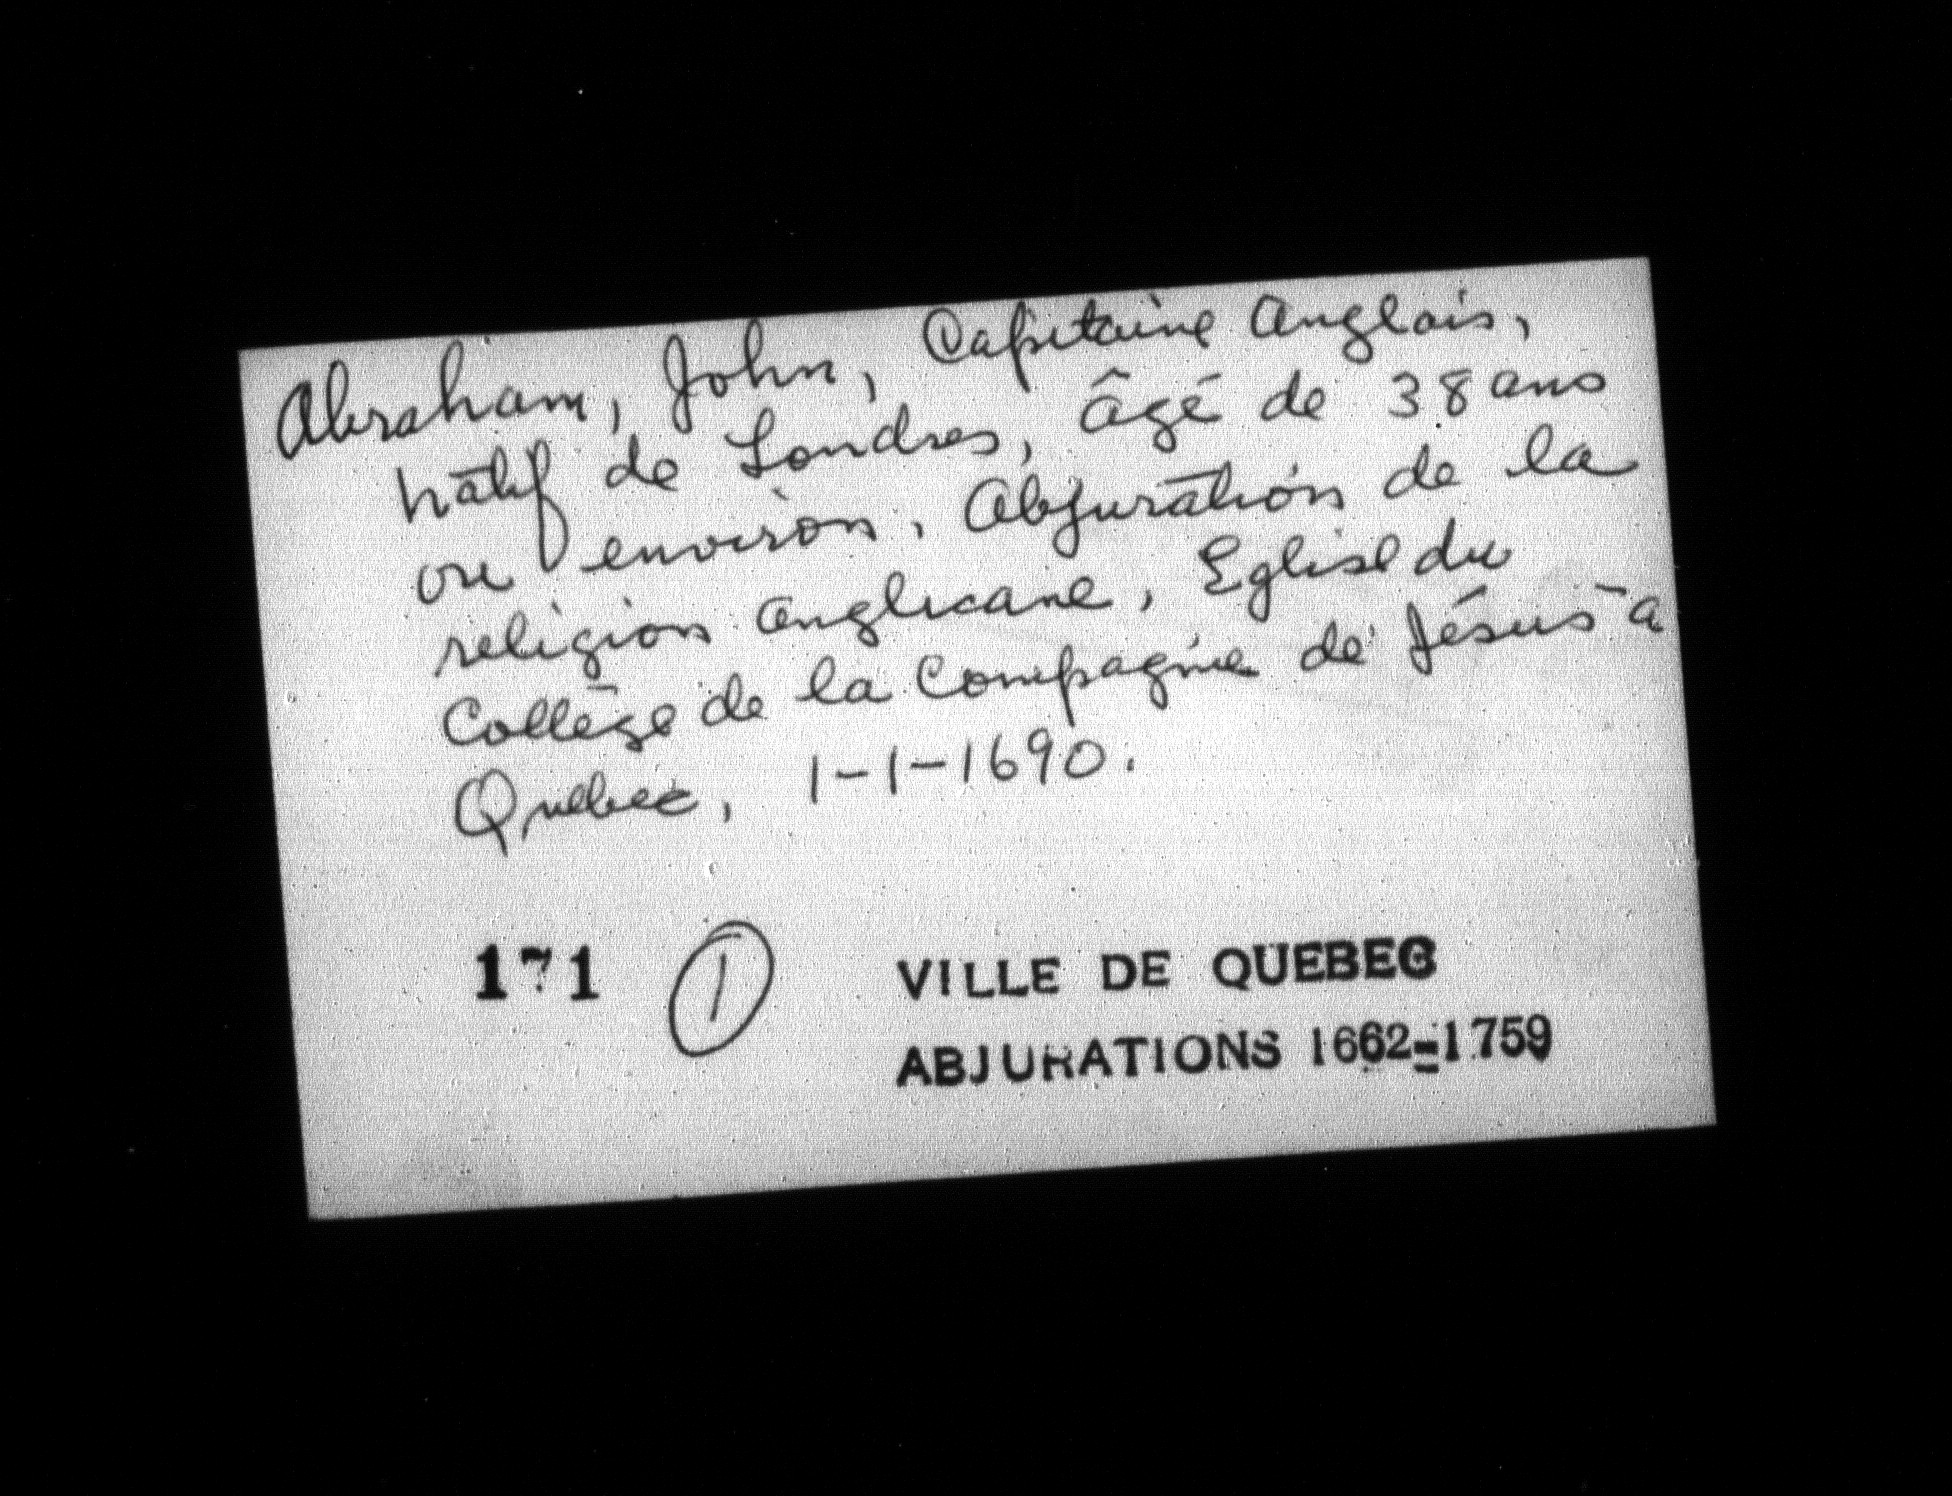 Abraham, John, Capitaine Anglais,
natif de Londres, âgé de 38 ans
ou environ. Abjuration de la
religion anglicane, Eglise du
Collège de la Compagnie de Jésus à
Québec, 1-1-1690.
171 1 VILLE DE QUEBEC
ABJURATIONS 1662-1759